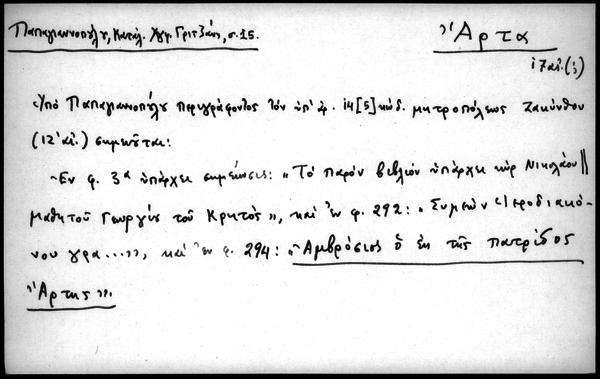 Παπαγιαννοπούλου, Καταλ. Χφφ. Γριτζάνη, σ. 15.
Ἄρτα
17 αἰ. (;)
Ὑπὸ Παπαγιαννοπούλου περιγράφοντος τὸν ὑπ' ἀρ. 14[5] κώδ. μητροπόλεως Ζακύνθου
(12' αἰ.) σημειοῦται:
Ἐν φ. 3α ὑπάρχει σημείωσις: „Τὸ παρὸν βιβλίον ὑπάρχει κὺρ Νικολάου ||
μαθητοῦ Γεωργίου τοῦ Κρητὸς", καὶ ἐν φ. 292: „Συμεὼν Ἱεροδιακό-
νου γρα....", καὶ ἐν φ. 294: „Ἀμβρόσιος ὁ ἐκ τῆς πατρίδος
Ἄρτης".